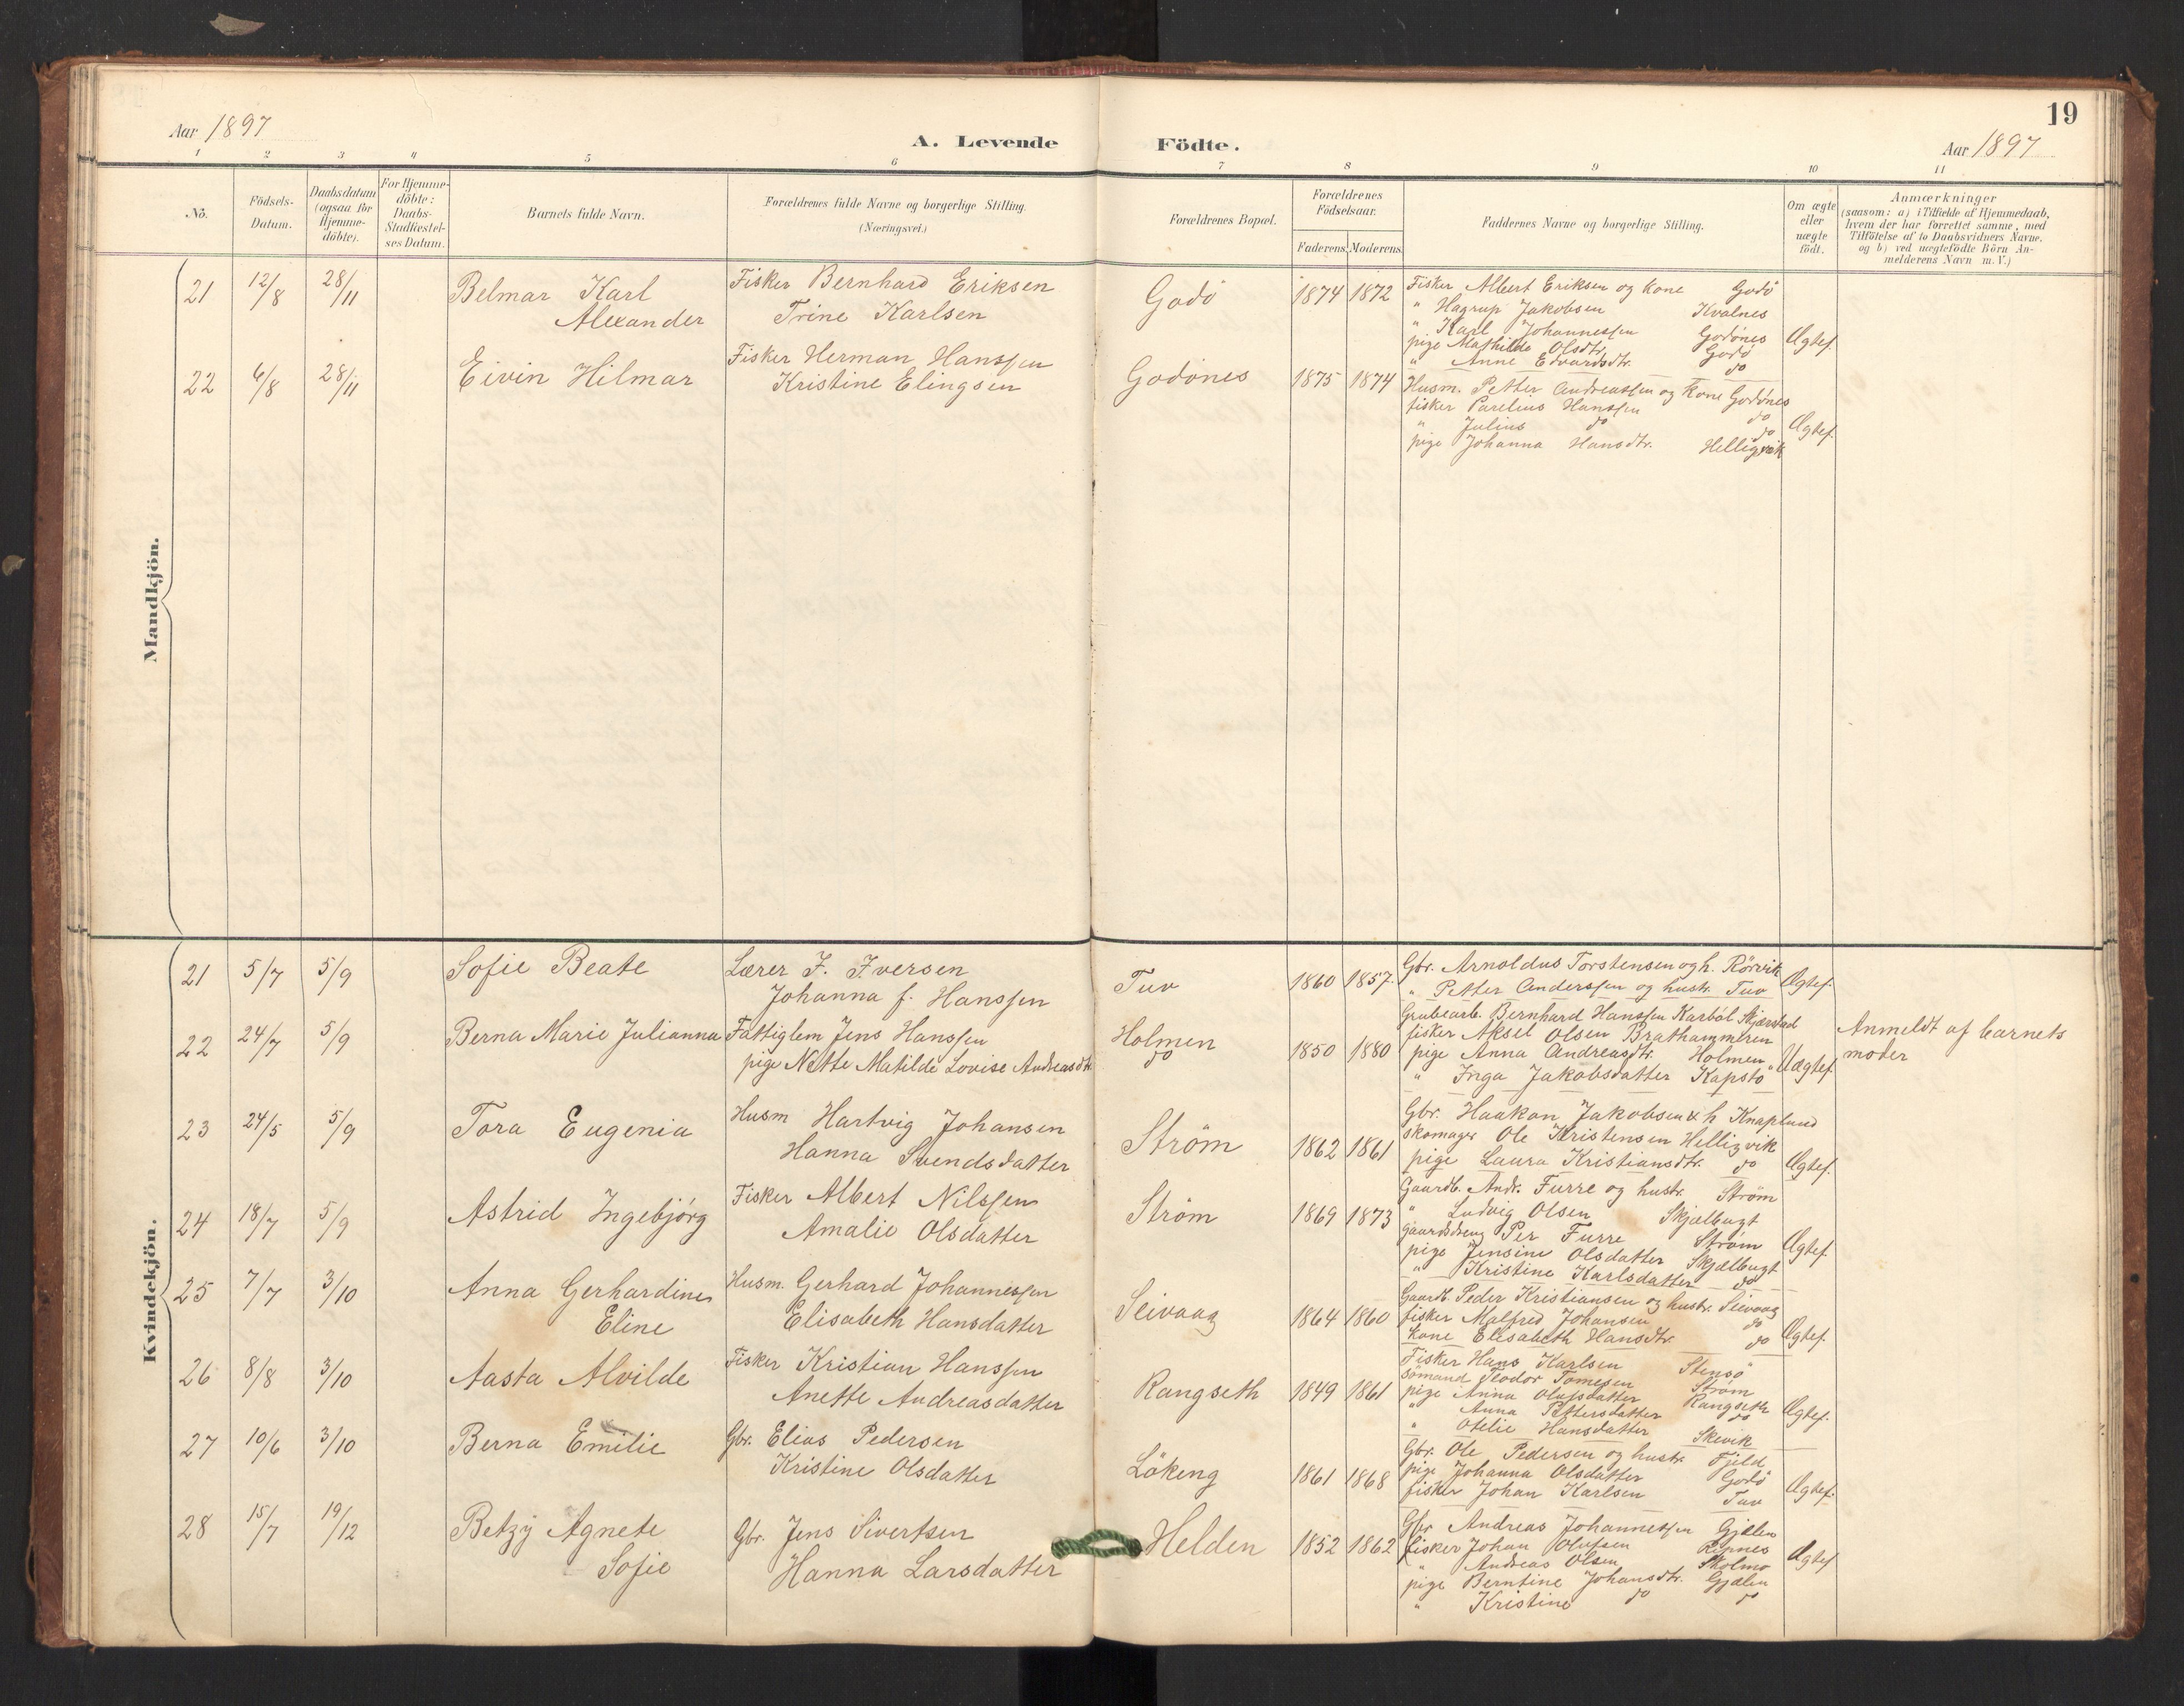 Aar 1897
A. Levende Födte.
19
Aar 1897
1 2 3 4 5 6 7 8 9 10 11
No.
Födsels-
Datum.
Daabsdatum
(ogsaa for
Hjemme-
döbte).
For Hjemme-
döbte:
Daabs-
Stadfæstel-
ses Datum.
Barnets fulde Navn.
Forældrenes fulde Navne og borgerlige Stilling.
(Næringsvei.)
Forældrenes Bopæl.
Forældrenes
Födselsaar.
Faderens. Moderens.
Faddernes Navne og borgerlige Stilling.
Om ægte
eller
uægte
födt.
Anmærkninger
(saasom: a) i Tilfælde af Hjemmedaab,
hvem der har forrettet samme, med
Tilföielse af to Daabsvidners Navne.
og b) ved uægtefödte Börn An-
melderens Navn m. V.)
Mandkjön.
21 12/8 28/11 Belmar Karl
Alexander
Fisker Bernhard Eriksen
Trine Karlsen
Godö 1874 1872
Fisker Albert Eriksen og kone Godö
" Hagrup Jakobsen Kvalnes
" Karl Johannessen Godönes
pige Mathilde Olsdtr. Godö
" Anne Edvardsdtr. do
Ægtef.
22 6/8 28/11 Eivin Hilmar
Fisker Herman Hanssen
Kristine Elingsen
Godönes 1875 1874
Husm. Petter Andreassen og kone Godönes
fisker Parelius Hanssen do
" Julius do do
pige Johanna Hansdtr. Helligvik
Ægtef.
Kvindekjön.
21 5/7 5/9 Sofie Beate
Lærer I. Iversen
Johanna f. Hanssen
Tuv 1860 1857.
Gbr. Arnoldus Torstensen og h. Rörvik
" Petter Anderssen og hustr. Tuv
Ægtef.
22 24/7 5/9 Berna Marie Julianna
Fattiglem Jens Hanssen
pige Nette Matilde Lovise Andreasdtr.
Holmen
do
1850 1880
Grubearb. Bernhard Hanssen Karböl Skjærstad
fisker Aksel Olsen Brathammeren
pige Anna Andreasdtr. Holmen
" Inga Jakobsdatter Kapstö
Uægtef.
Anmeldt af barnets
moder
23 24/5 5/9 Tora Eugenia
Husm Hartvig Johansen
Hanna Svendsdatter
Ström 1862 1861
Gbr. Haakon Jakobsen & h Knaplund
skomager Ole Kristensen Helligvik
pige Laura Kristiansdtr. do
Ægtef.
24 18/7 5/9 Astrid Ingebjörg
Fisker Albert Nilssen
Amalie Olsdatter
Ström 1869 1873
Gaardb. Andr. Furre og hustr. Ström
" Ludvig Olsen Skjælbugt
gaardsdreng Per Furre Ström
pige Jensine Olsdatter Skjælbugt
" Kristine Karlsdatter do
Ægtef.
25 7/7 3/10 Anna Gerhardine
Eline
Husm. Gerhard Johannessen
Elisabeth Hansdatter
Seivaag 1864 1860
Gaardb. Peder Kristiansen og hustr. Seivaag
fisker Malfred Johansen do
kone Elisabeth Hansdtr. do
Ægtef.
26 8/8 3/10 Aasta Alvilde
Fisker Kristian Hanssen
Anette Andreasdatter
Rangseth 1849 1861
Fisker Hans Karlsen Stensö
sömand Teodor Tomesen Ström
pige Anna Olufsdatter Rangseth
" Anna Pettersdatter do
" Otelie Hansdatter Skevik
Ægtef.
27 10/6 3/10 Berna Emilie
Gbr. Elias Pedersen
Kristine Olsdatter
Lökeng 1861 1868
Gbr. Ole Pedersen og hustr. Fjeld
pige Johanna Olsdatter Godö
fisker Johan Karlsen Tuv
Ægtef.
28 15/7 19/12 Betzy Agnete
Sofie
Gbr. Jens Sivertsen
Hanna Larsdatter
Helden 1852 1862
Gbr Andreas Johannessen Gjælen
fisker Johan Olufsen Ripnes
" Andreas Olsen Skolmo
pige Berntine Johansdtr. Gjælen
" Kristine do do
Ægtef